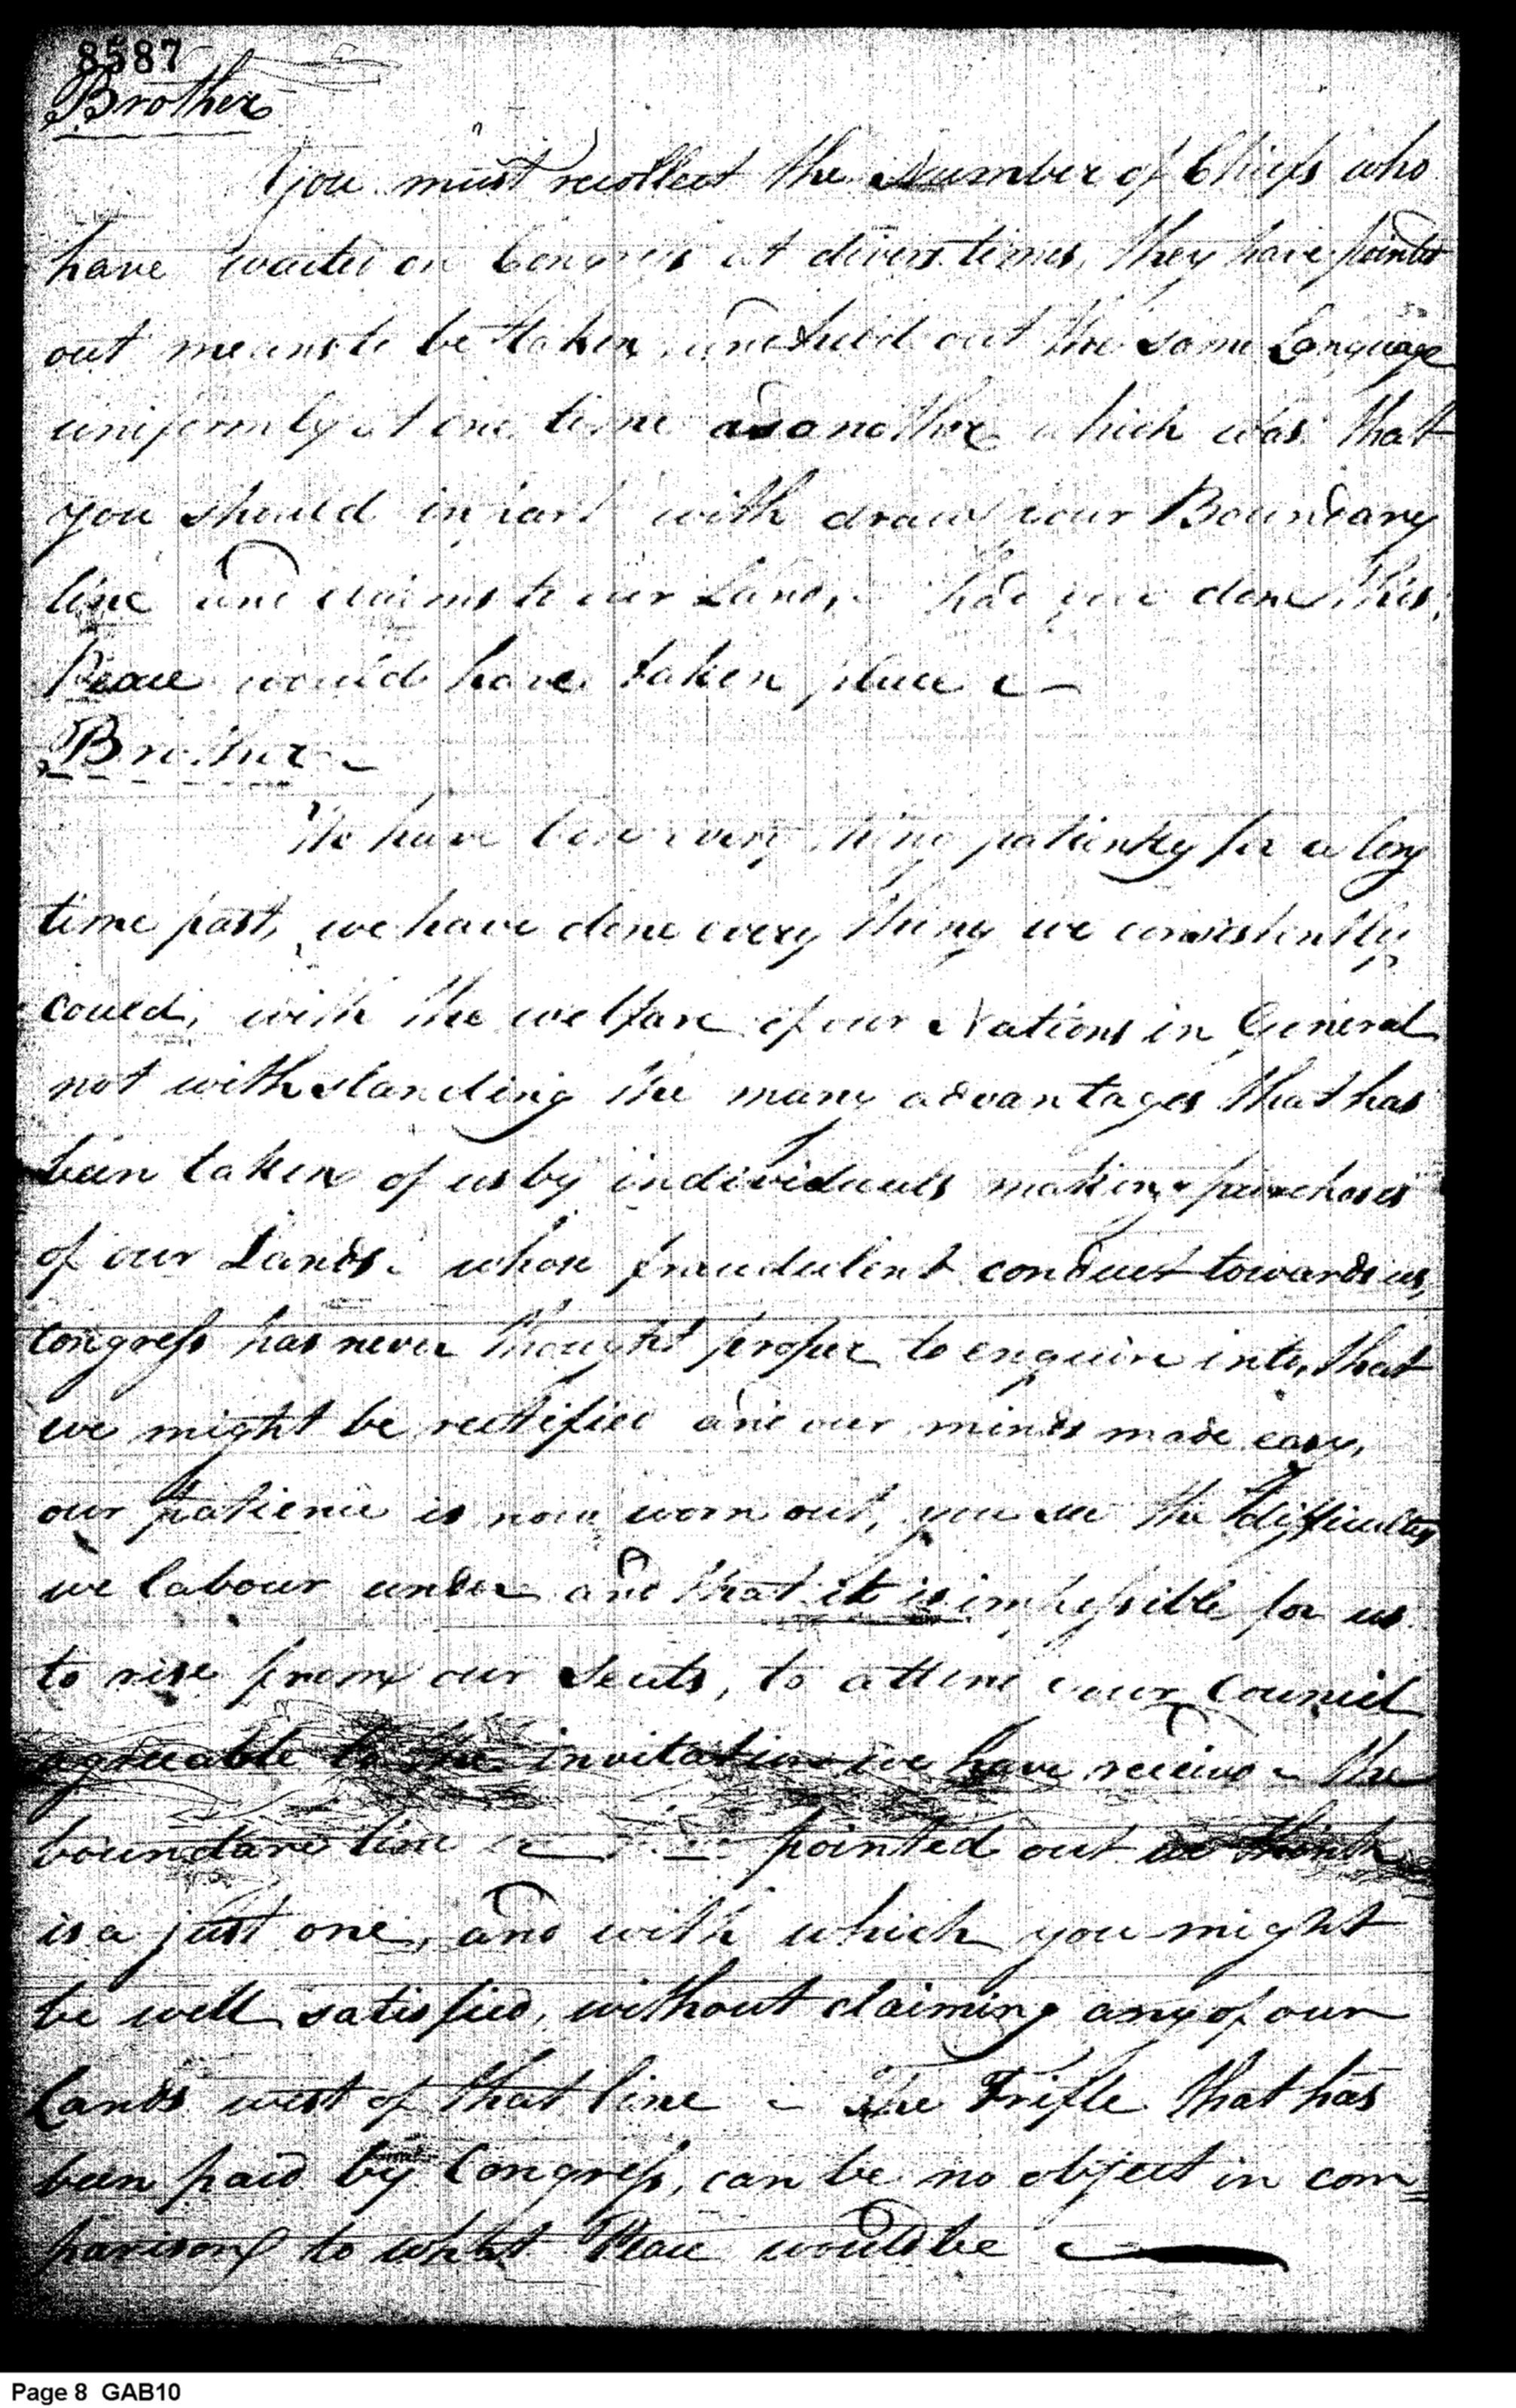 8587
Brother
You must recollect the Number of Chiefs who
have waited on Congress at divers times, they have pointed
out means to be taken, and held out the same Language
uniformly at one time as another which was that
you should in part with draw your Boundary
line and claims to our Lands, had you done this,
Peace would have taken place
Brother
We have bore every thing patiently for a long
time past, we have done every thing we consistently
could, with the welfare of our Nations in General
not withstanding the many advantages that has
been taken of us by individuals making purchases
of our Lands. whose fraudulent conduct towards us,
Congress has never thought proper to enquire into, that
we might be rectified and our minds made easy,
our patience is now worn out, you see the difficulty
we labour under and that it is impossible for us
to rise from our Seats, to attend your Council
agreeable to the invitation we have received - the
boundary line pointed out we think
is a just one, and with which you might
be well satisfied, without claiming any of our
Lands west of that line - The Trifle that has
been paid by Congress, can be no object in com=
parison to what Peace would be
Page 8 GAB10